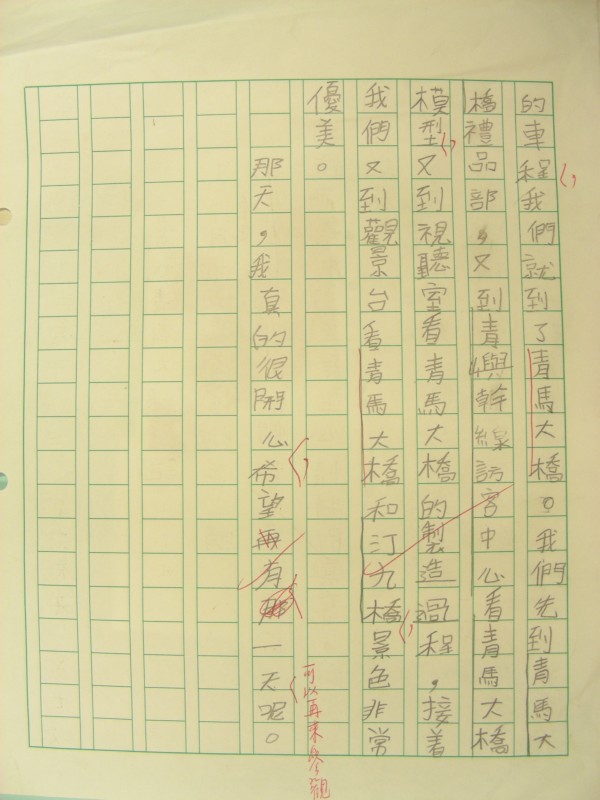 的車程我們就到了青馬大橋。我們先到青馬大
橋禮品部,又到青嶼幹線訪客中心看青馬大橋
模型又到視聽室看青馬大橋的製造過程,接着
我們又到觀景台看青馬大橋和汀九橋景色非常
優美。
那天,我真的很開心希望有一天呢。
可以再來參觀